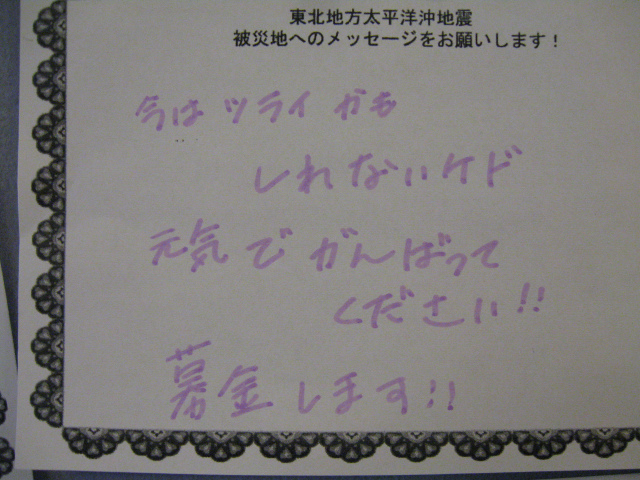 東北地方太平洋沖地震
被災地へのメッセージをお願いします!
今はツライかも
しれないケド
元気でがんばって
ください!!
募金します!!